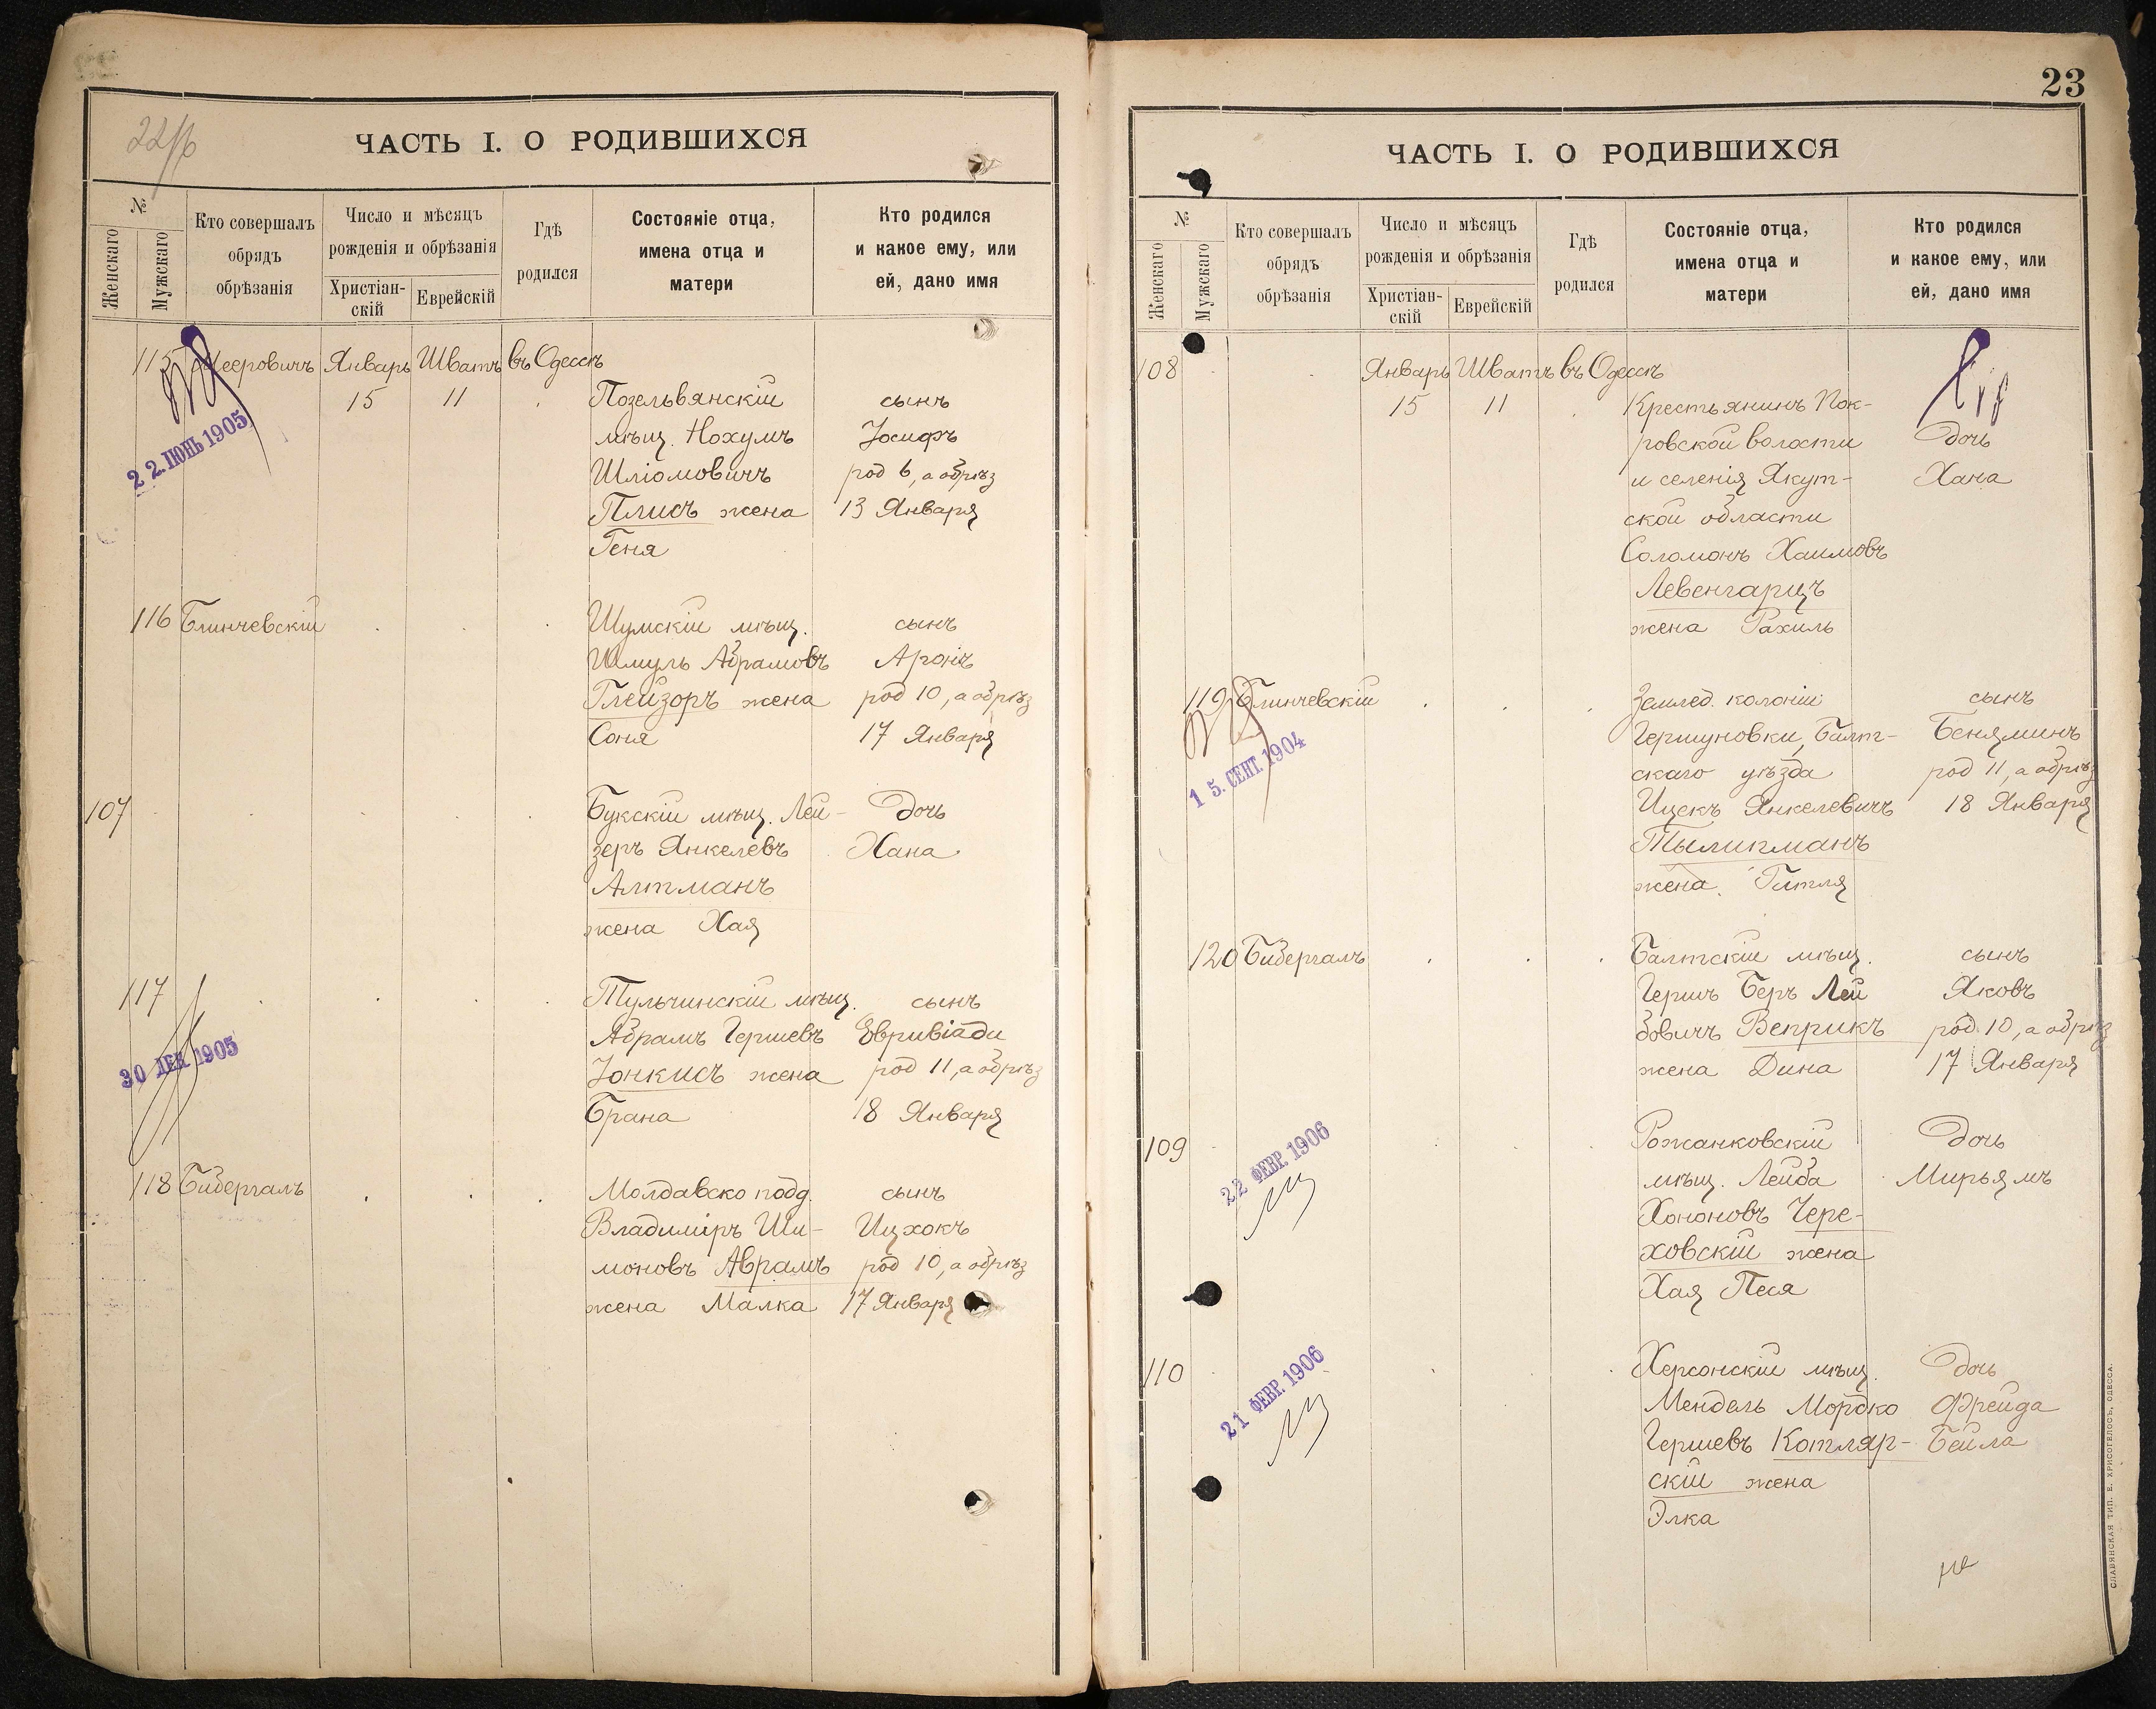 22/б
ЧАСТЬ I. О РОДИВШИХСЯ
№
Женскаго
Мужскаго
Кто совершалъ
обрядъ
обрѣзанія
Число и мѣсяцъ
рожденія и обрѣзанія
Христіан-
скій
Еврейскій
Гдѣ
родился
Состояніе отца,
имена отца и
матери
Кто родился
и какое ему, или
ей, дано имя
115 Мееровичъ Январь Шватъ въ Одессѣ
15 11
22. ІЮНЬ 1905
Позельвянскій
мѣщ. Нохумъ
Шліомовичъ
Плисъ жена
Геня
сынъ
Іосифъ
род 6, а обрѣз
13 Января
116 Блинчевскій
Шумскій мѣщ.
Шмуль Абрамовъ
Глейзоръ жена
Соня
сынъ
Аронъ
род 10, а обрѣз
17 Января
107
Букскій мѣщ. Лей-
зеръ Янкелевъ
Алтманъ
жена Хая
дочь
Хана
117
30 ДЕК. 1905
Тульчинскій мѣщ.
Абрамъ Гершевъ
Іонкисъ жена
Брана
сынъ
Евривіади
род 11, а обрѣз
18 Января
118 Бибергалъ
Молдавско подд.
Владиміръ Ши-
моновъ Аврамъ
жена Малка
сынъ
Ицхокъ
род 10, а обрѣз
17 Января
23
ЧАСТЬ I. О РОДИВШИХСЯ
№
Женскаго
Мужскаго
Кто совершалъ
обрядъ
обрѣзанія
Число и мѣсяцъ
рожденія и обрѣзанія
Христіан-
скій
Еврейскій
Гдѣ
родился
Состояніе отца,
имена отца и
матери
Кто родился
и какое ему, или
ей, дано имя
108 Январь Шватъ въ Одессѣ
15 11
Крестьянинъ Пок-
ровской волости
и селенія Якут-
ской области
Соломонъ Хаимовъ
Левенгарцъ
жена Рахиль
дочь
Хана
119 Блинчевскій
15. СЕНТ. 1904
Землед. колоніи
Гершуновки, Балт-
скаго уѣзда
Ицекъ Янкелевичъ
Тылипманъ
жена Гитля
сынъ
Беняминъ
род 11, а обрѣз
18 Января
120 Бибергалъ
Балтскій мѣщ.
Гершъ Беръ Лей
бовичъ Веприкъ
жена Дина
сынъ
Яковъ
род. 10, а обрѣз
17 Января
109
22 ФЕВР. 1906
Рожанковскій
мѣщ. Лейба
Хононовъ Чере-
ховскій жена
Хая Песя
дочь
Мирьямъ
110
21 ФЕВР. 1906
Херсонскій мѣщ.
Мендель Мордко
Гершевъ Котляр-
скій жена
Элка
дочь
Фрейда
Бейла
СЛАВЯНСКАЯ ТИП. Е. ХРИСОГЕЛОСЪ, ОДЕССА.